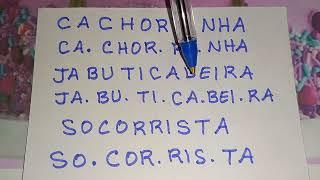 CA. CHOR. NHA
JABUTICABEIRA
JA. BU. TI. CA. BEI. RA
SOCORRISTA
SO. COR. RIS. TA